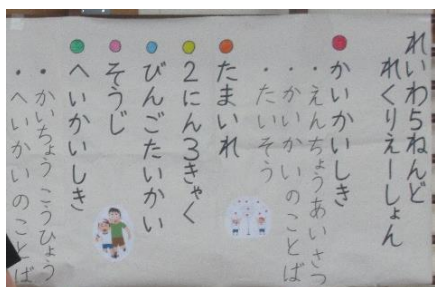 れいわ5ねんど
れくりえーしょん
かいかいしき
・えんちょうあいさつ
・かいかいのことば
・たいそう
たまいれ
2にん3きゃく
びんごたいかい
そうじ
へいかいしき
・かいちょうこうひょう
・へいかいのことば